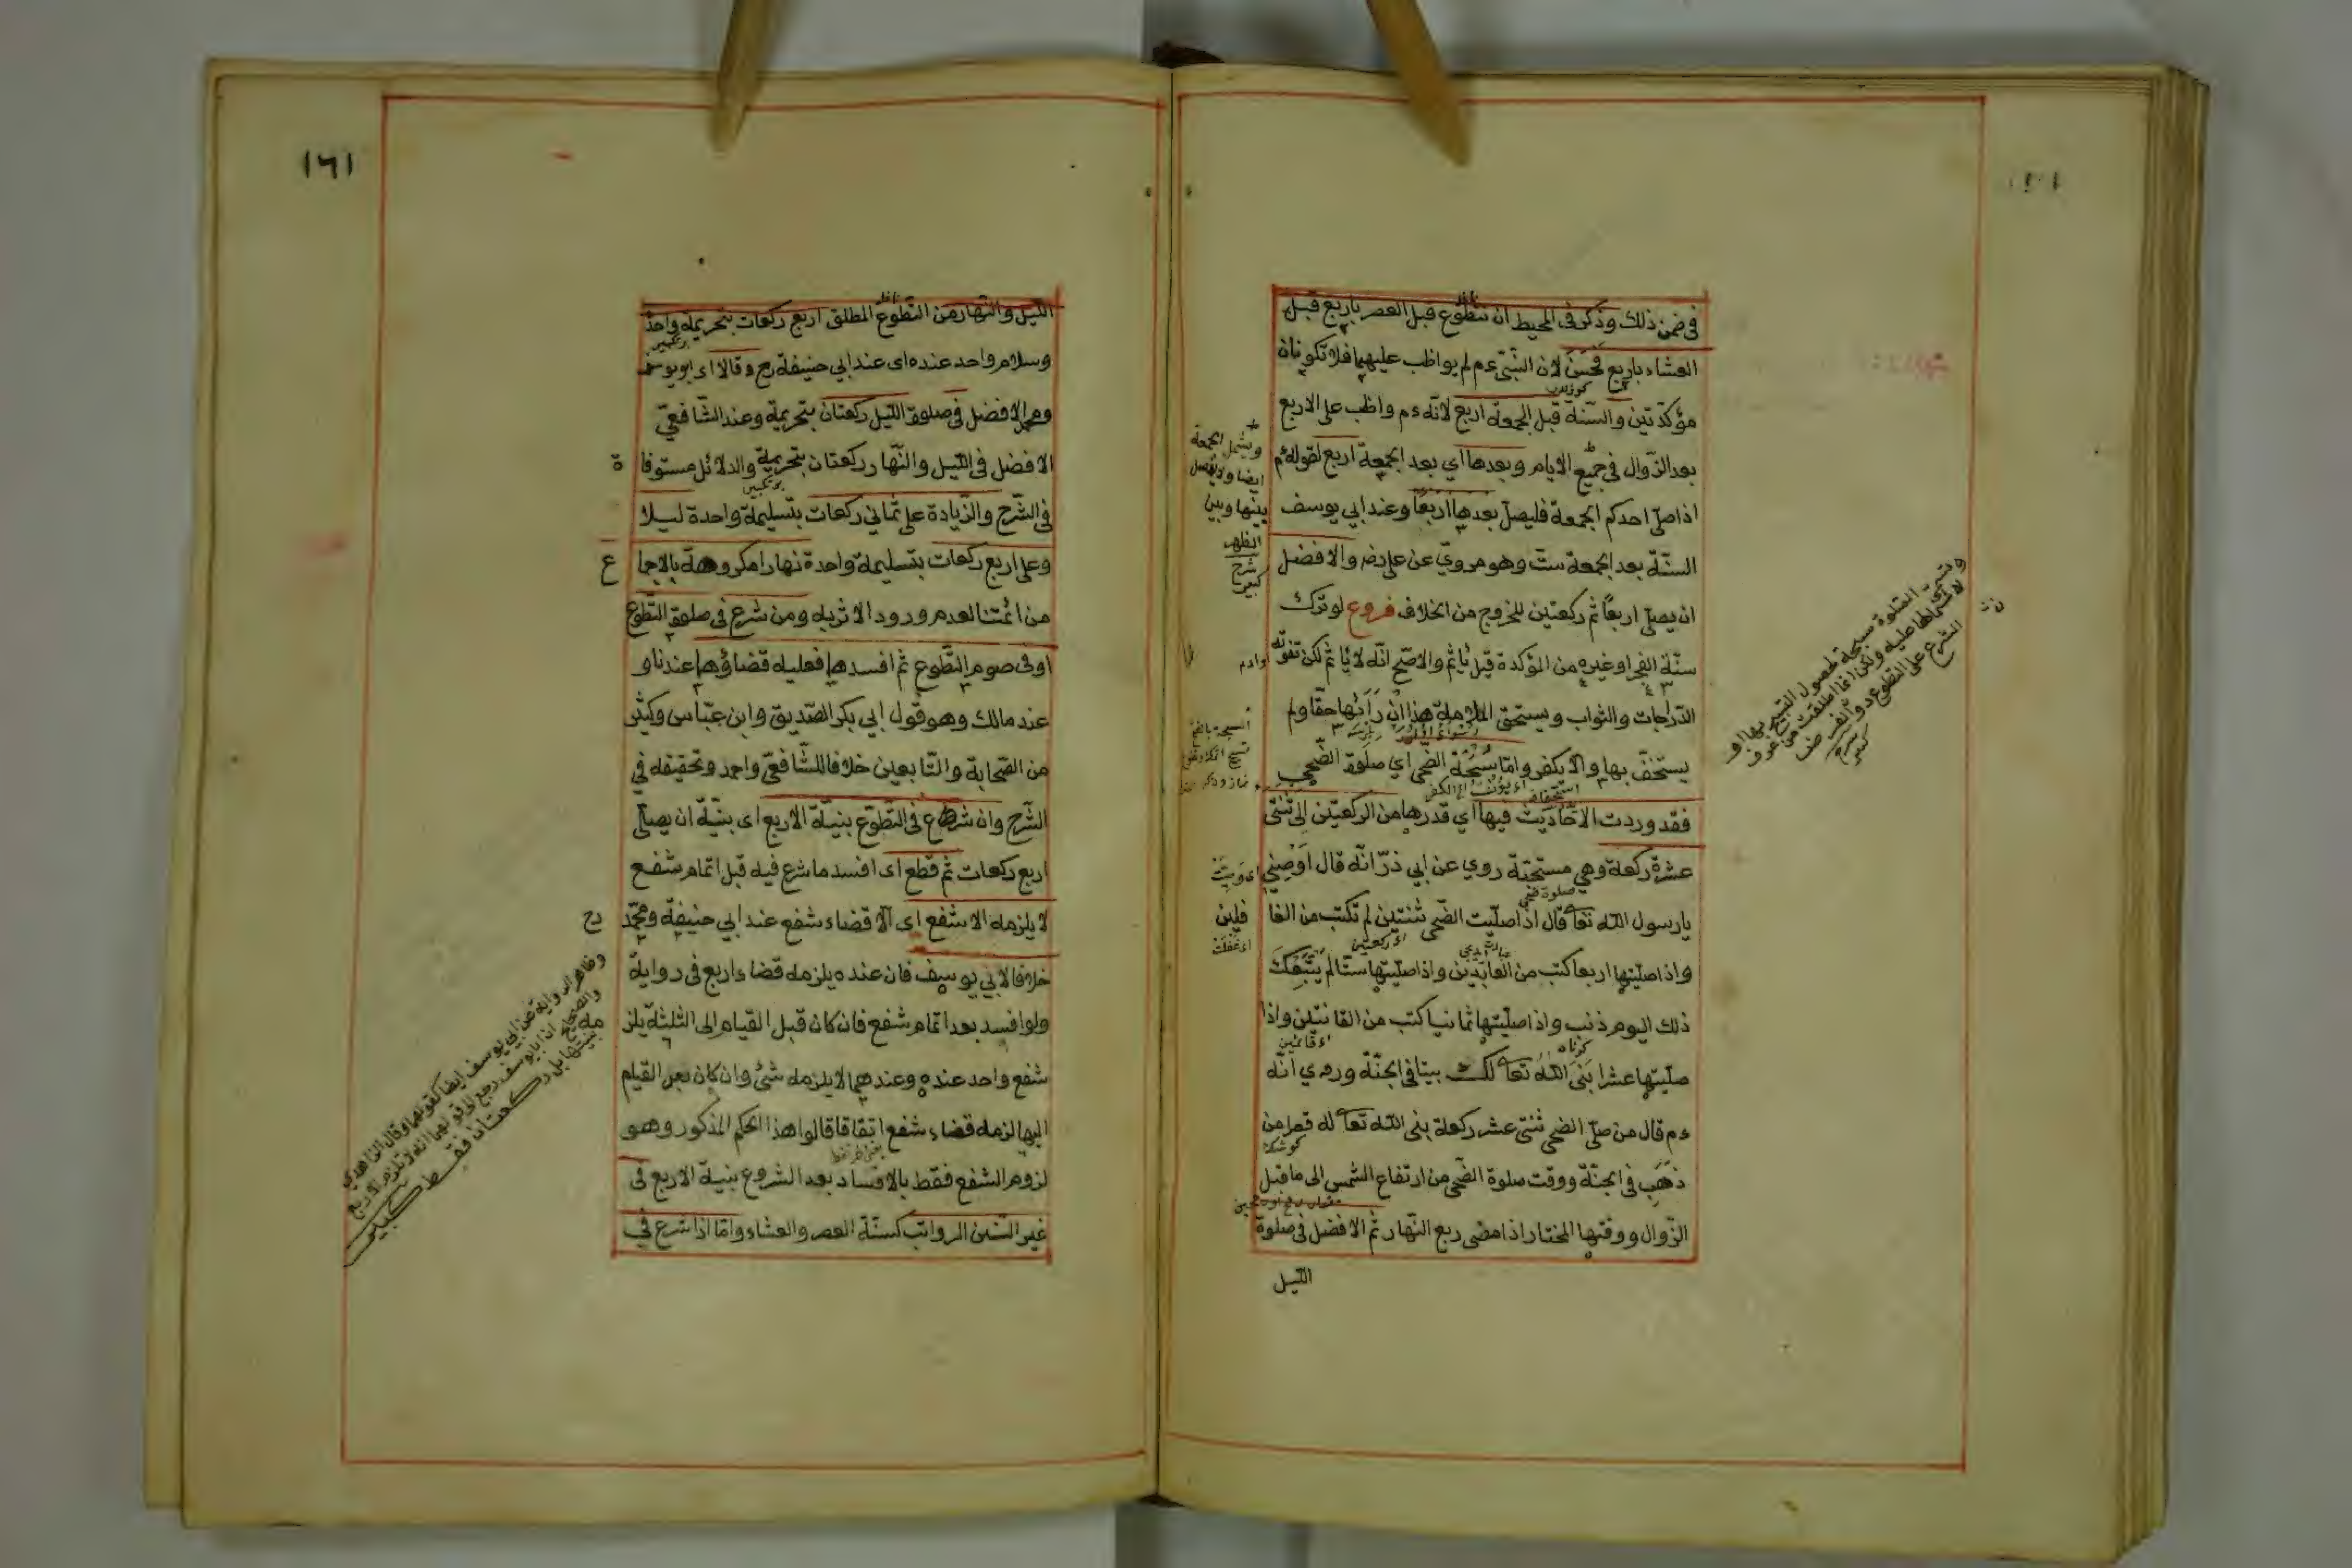 في ضمن ذلك وذكر في المحيط ان تطوع قبل العصر باربع قبل
العشاء باربع فحسن لان النبي عم لم يواظب عليهما فلا تكونان
مؤكدتين والسنة قبل الجمعة اربع لانه عم واظب على الاربع
بعد الزوال في جميع الايام وبعدها اي بعد الجمعة اربع لقوله عم
اذا صلى احدكم الجمعة فليصل بعدها اربعا وعند ابي يوسف
السنة بعد الجمعة ست وهو مروي عن علي رضه والافضل
ان يصلي اربعا ثم ركعتين للخروج من الخلاف فروع لو ترك
سنة الفجر او غيره من المؤكدة قيل يأثم والاصح انه لا يأثم لكن تفوته
الدرجات والثواب ويستحق الملامة هذا ان رأىها حقا ولم
يستخف بها والا يكفر واما سبحة الضحى اي صلوة الضحى
فقد وردت الاحاديث فيها اي قدرها من الركعتين الى ثنتى
عشرة ركعة وهي مستحبة روي عن ابي ذر انه قال اوصني
يا رسول الله تعا قال اذا صليت الضحى ثنتين لم تكتب من الغا
فلين
واذا صليتها اربعا كتب من العابدين واذا صليتها ستا لم يتبعك
ذلك اليوم ذنب واذا صليتها ثمانيا كتب من القانتين واذا
صليتها عشرا بنى الله تعا لك بيتا في الجنة وروي انه
عم قال من صلى الضحى ثنتى عشر ركعة بنى الله تعا له قصرا من
ذهب في الجنة ووقت صلوة الضحى من ارتفاع الشمس الى ما قبل
الزوال ووقتها المختار اذا مضى ربع النهار ثم الافضل في صلوة
الليل
ويشمل الجمعة
ايضا
بينها وبين
الظهر
شرح
كبير
١٦١
الليل والنهار من التطوع المطلق اربع ركعات بتحريمة واحدة
وسلام واحد عنده اى عند ابي حنيفة رح وقالا اى ابو يوسف
ومحمد الافضل في صلوة الليل ركعتان بتحريمة وعند الشافعي
الافضل في الليل والنهار ركعتان بتحريمة والدلائل مستوفا ة
في الشرح والزيادة على ثماني ركعات بتسليمة واحدة ليلا
وعلى اربع ركعات بتسليمة واحدة نهارا مكروهة بالاجما ع
من ائمتنا لعدم ورود الاثر به ومن شرع في صلوة التطوع
او في صوم التطوع ثم افسدها فعليه قضاؤها عندنا و
عند مالك وهو قول ابي بكر الصديق وابن عباس وكثير
من الصحابة والتابعين خلافا للشافعي واحمد وتحقيقه في
الشرح وان شرع في التطوع بنية الاربع اى بنية ان يصلي
اربع ركعات ثم قطع اى افسد ما شرع فيه قبل اتمام شفع
لا يلزمه الا شفع اى الا قضاء شفع عند ابي حنيفة ومحمد رح
خلافا لابي يوسف فان عنده يلزمه قضاء اربع في رواية
ولو افسد بعد اتمام شفع فان كان قبل القيام الى الثلثة يلز مه
شفع واحد عنده وعندهما لا يلزمه شئ وان كان بعد القيام
اليها لزمه قضاء شفع اتفاقا قالوا هذا الحكم المذكور وهو
لزوم الشفع فقط بالافساد بعد الشروع بنية الاربع في
غير السنن الرواتب كسنة العصر والعشاء واما اذا شرع في
وظاهر الرواية عن ابي يوسف ايضا كقولهما وقال الزاهدي
والصحيح ان ابا يوسف رجع الى قولهما انه لا تلزم الاربع
بنيتها بل ركعتان فقط كبير